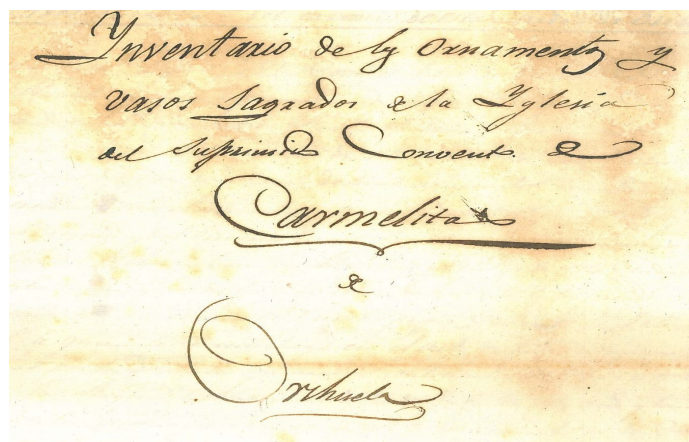 Ynventario de los Ornamentos y
Vasos Sagrados de la Yglesia
del Suprimido Convento de
Carmelitas
de
Orihuela